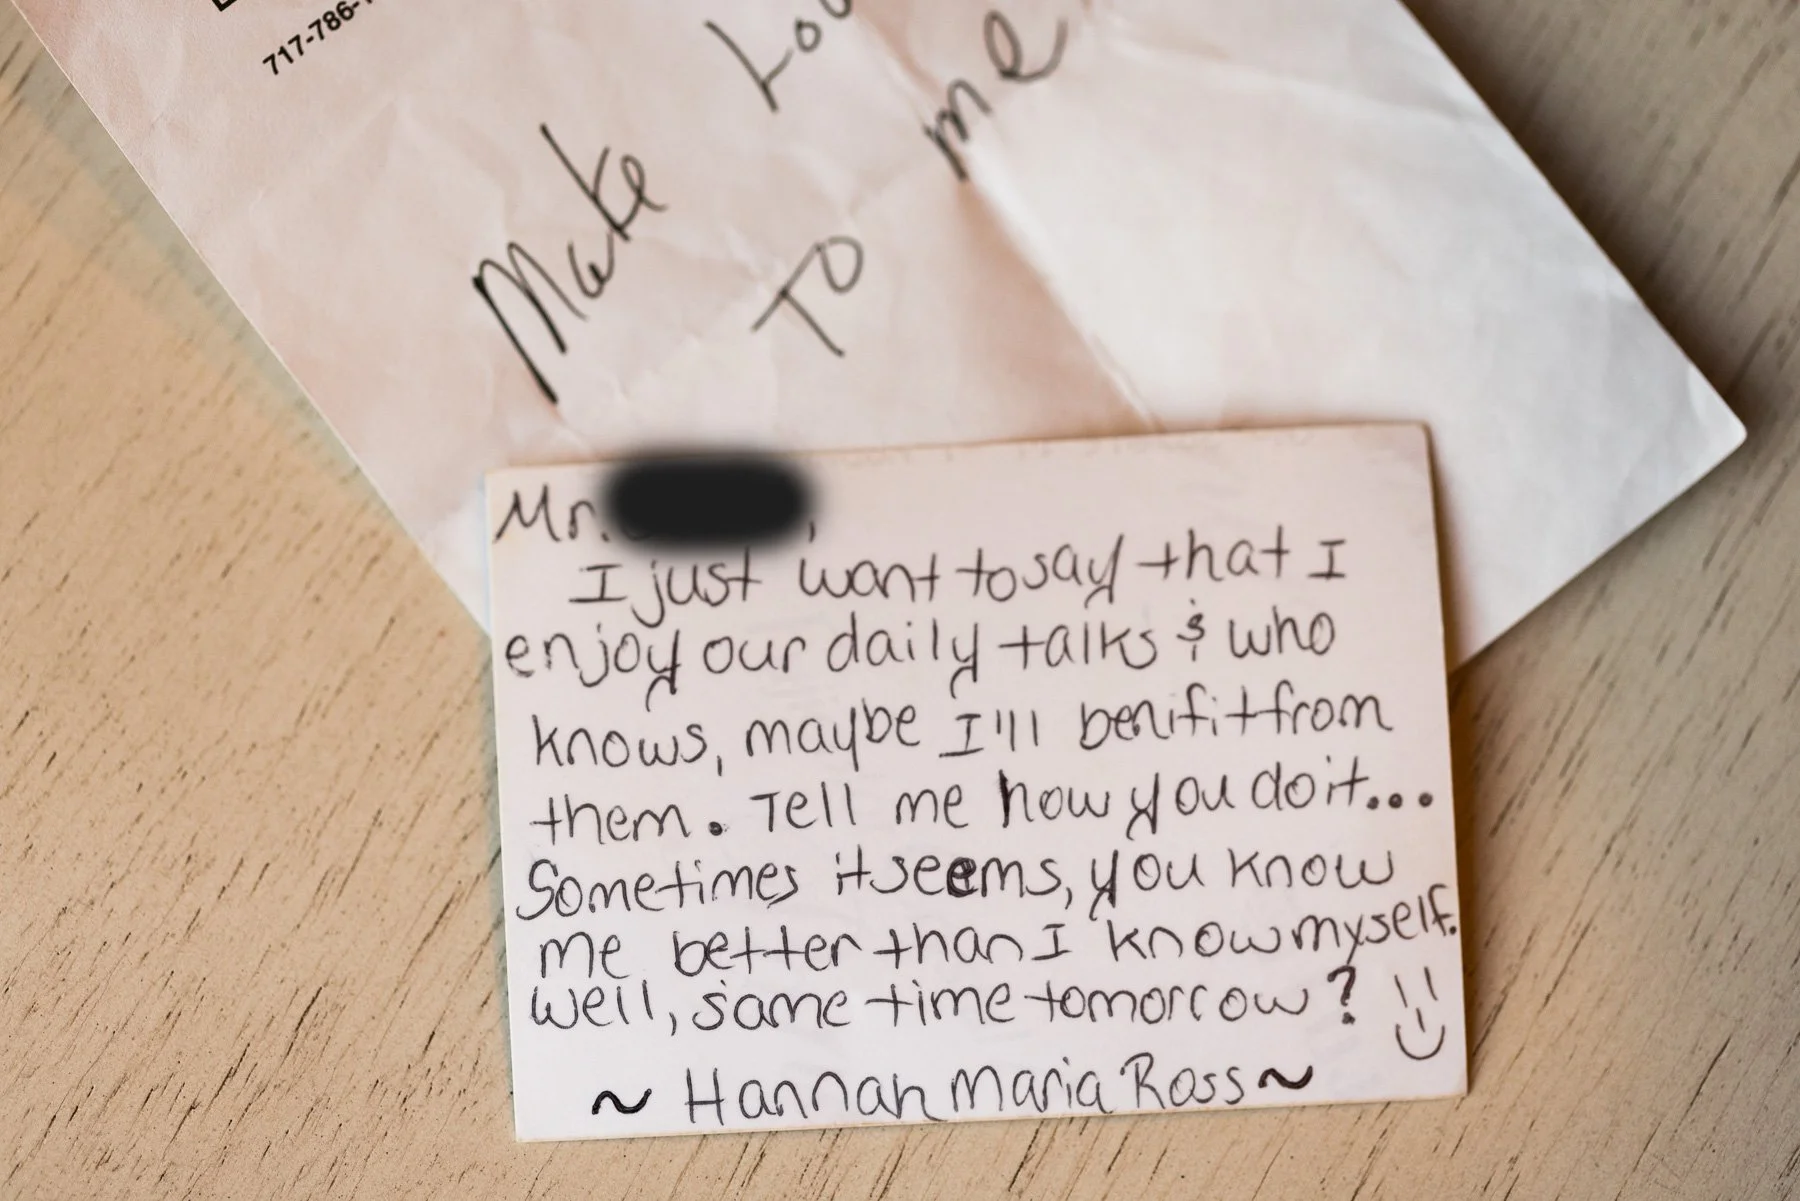 717-786-
Make
to me
Mr.
I just want to say that I
enjoy our daily talks & who
knows, maybe I'll benifit from
them. Tell me how you do it...
Sometimes it seems, you know
me better than I know myself.
Well, same time tomorrow?
~ Hannah Maria Ross ~